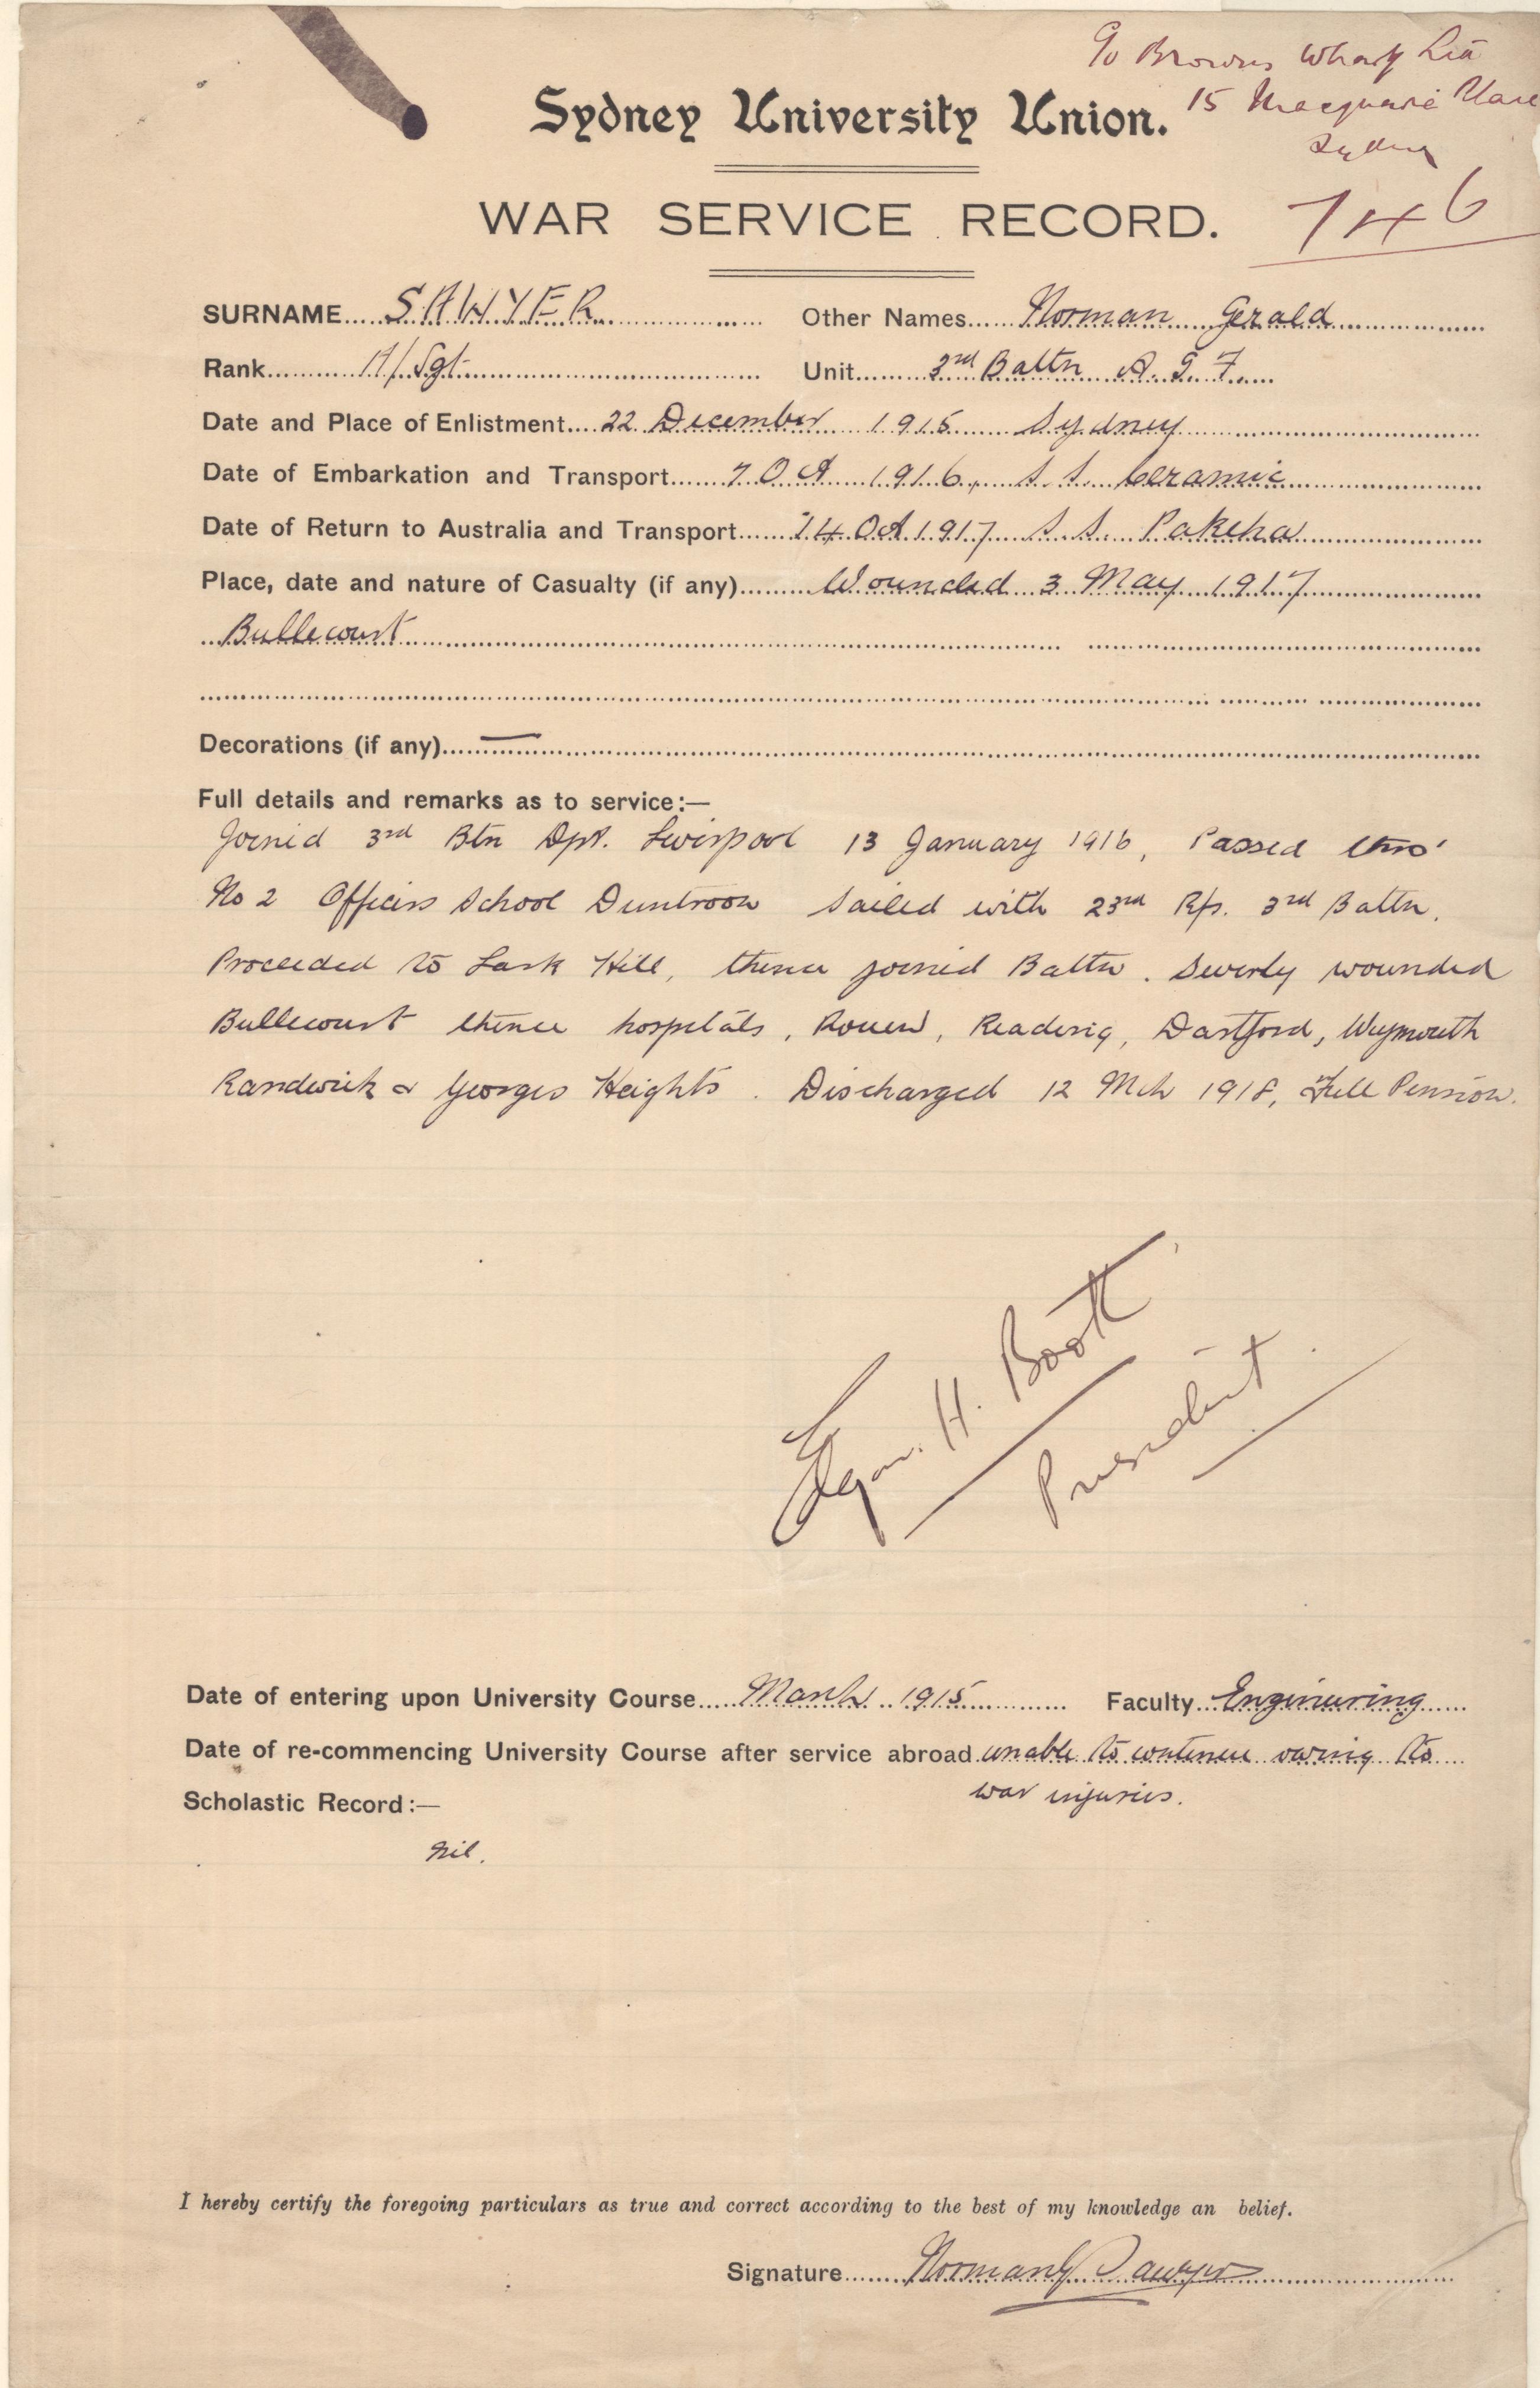 C/o Browns Wharf Ltd
15 Macquarie Place
Sydney
Sydney University Union.
WAR SERVICE RECORD. 746
SURNAME SAWYER Other Names Norman Gerald
Rank A/Sgt Unit 3rd Battn A.I.F.
Date and Place of Enlistment 22 December 1915 Sydney
Date of Embarkation and Transport 7 Oct 1916, S.S. Ceramic
Date of Return to Australia and Transport 14 Oct 1917 S.S. Pakeha
Place, date and nature of Casualty (if any) Wounded 3 May 1917
Bullecourt
Decorations (if any) —
Full details and remarks as to service:—
Joined 3rd Btn Dpt. Liverpool 13 January 1916, Passed thro'
No 2 Officers School Duntroon Sailed with 23rd Rfs. 3rd Battn.
Proceeded to Lark Hill, thence joined Battn. Severly wounded
Bullecourt thence hospitals, Rouen, Reading, Dartford, Weymouth
Randwick & Georges Heights. Discharged 12 Mch 1918, Full Pension.
H. Booth
President
Date of entering upon University Course March 1915 Faculty Engineering
Date of re-commencing University Course after service abroad unable to continue owing to
war injuries.
Scholastic Record:—
Nil.
I hereby certify the foregoing particulars as true and correct according to the best of my knowledge an belief.
Signature Norman G Sawyer